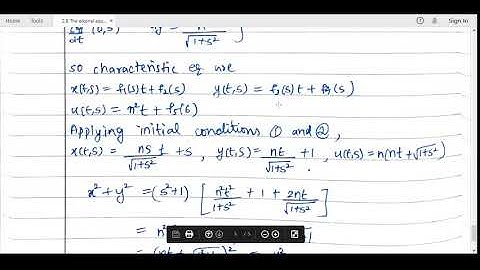 2.8 The eikonal equ...
Home Tools
Sign In
dy/dt (0,s) = n/√(1+s²)
so characteristic eq are
x(t,s) = f₁(s)t + f₂(s) y(t,s) = f₃(s)t + f₄(s)
u(t,s) = n²t + f₅(s)
Applying initial conditions ① and ②,
x(t,s) = ns t/√(1+s²) + s , y(t,s) = nt/√(1+s²) + 1 , u(t,s) = n(nt + √(1+s²))
x² + y² = (s²+1) [ n²t²/(1+s²) + 1 + 2nt/√(1+s²) ]
= n²
= (nt + )² =